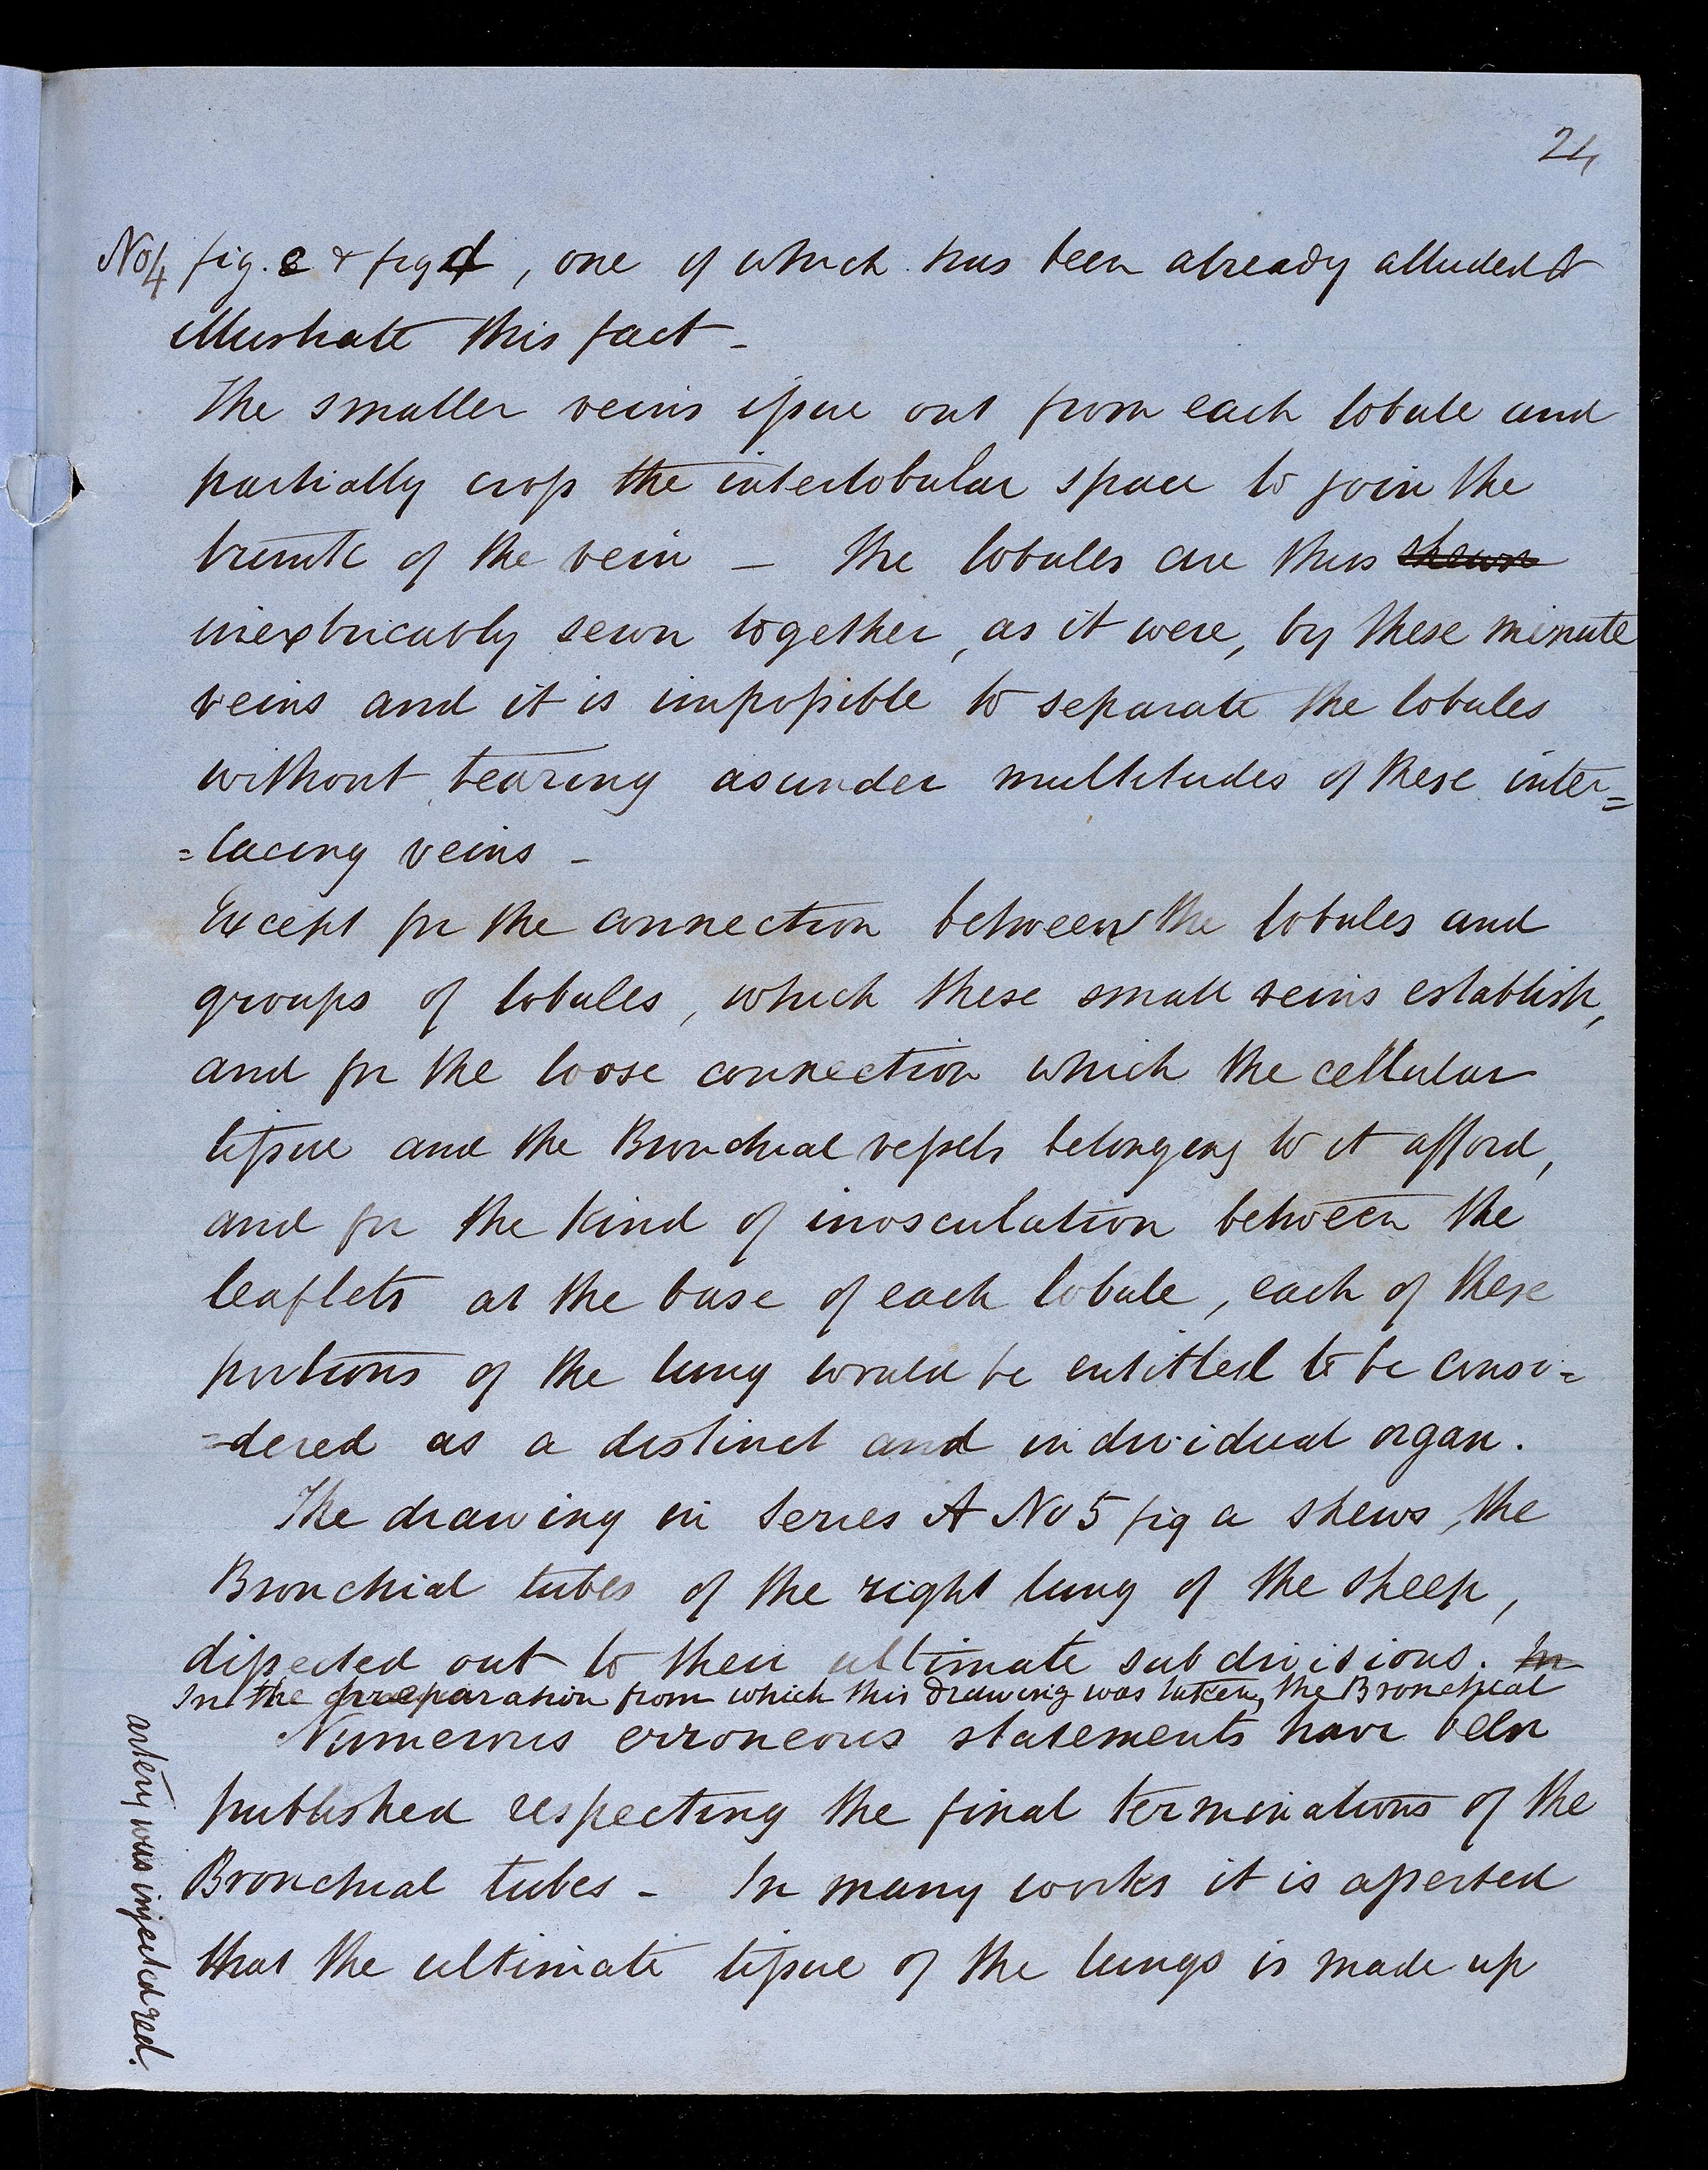 24
No 4 fig. c & fig d, one of which has been already alluded to
illustrate this fact -
The smaller veins issue out from each lobule and
partially cross the interlobular space to join the
trunk of the vein - The lobules are thus shewn
inextricably sewn together, as it were, by these minute
veins and it is impossible to separate the lobules
without tearing asunder multitudes of these inter=
=lacing veins -
Except for the connection between the lobules and
groups of lobules, which these small veins establish,
and for the loose connection which the cellular
tissue and the Bronchial vessels belonging to it afford,
and for the kind of inosculation between the
leaflets at the base of each lobule, each of these
portions of the lung would be entitled to be consi=
=dered as a distinct and individual organ.
The drawing in Series A No 5 fig a shews, the
Bronchial tubes of the right lung of the sheep,
dissected out to their ultimate subdivisions. In
In the preparation from which this drawing was taken, the Bronchial
artery was injected red.
Numerous erroneous statements have been
published respecting the final terminations of the
Bronchial tubes - In many works it is asserted
that the ultimate tissue of the lungs is made up